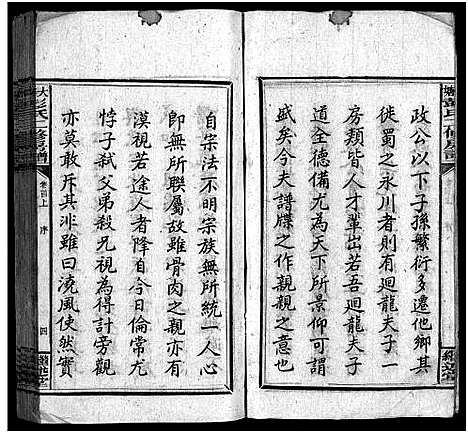 政公以下子孫繁衍多遷他鄉其
徙蜀之永川者則有迴龍夫子一
房類皆人才輩出若吾迴龍夫子
道全德備尤為天下所景仰可謂
盛矣今夫譜牒之作親親之意也
自宗法不明宗族無所統一人心
即無所聯屬故雖骨肉之親亦有
漠視若途人者降自今日倫常尤
悖子弒父弟殺兄視為得計旁觀
亦莫敢斥其非雖曰澆風使然實
卷首上
序
四